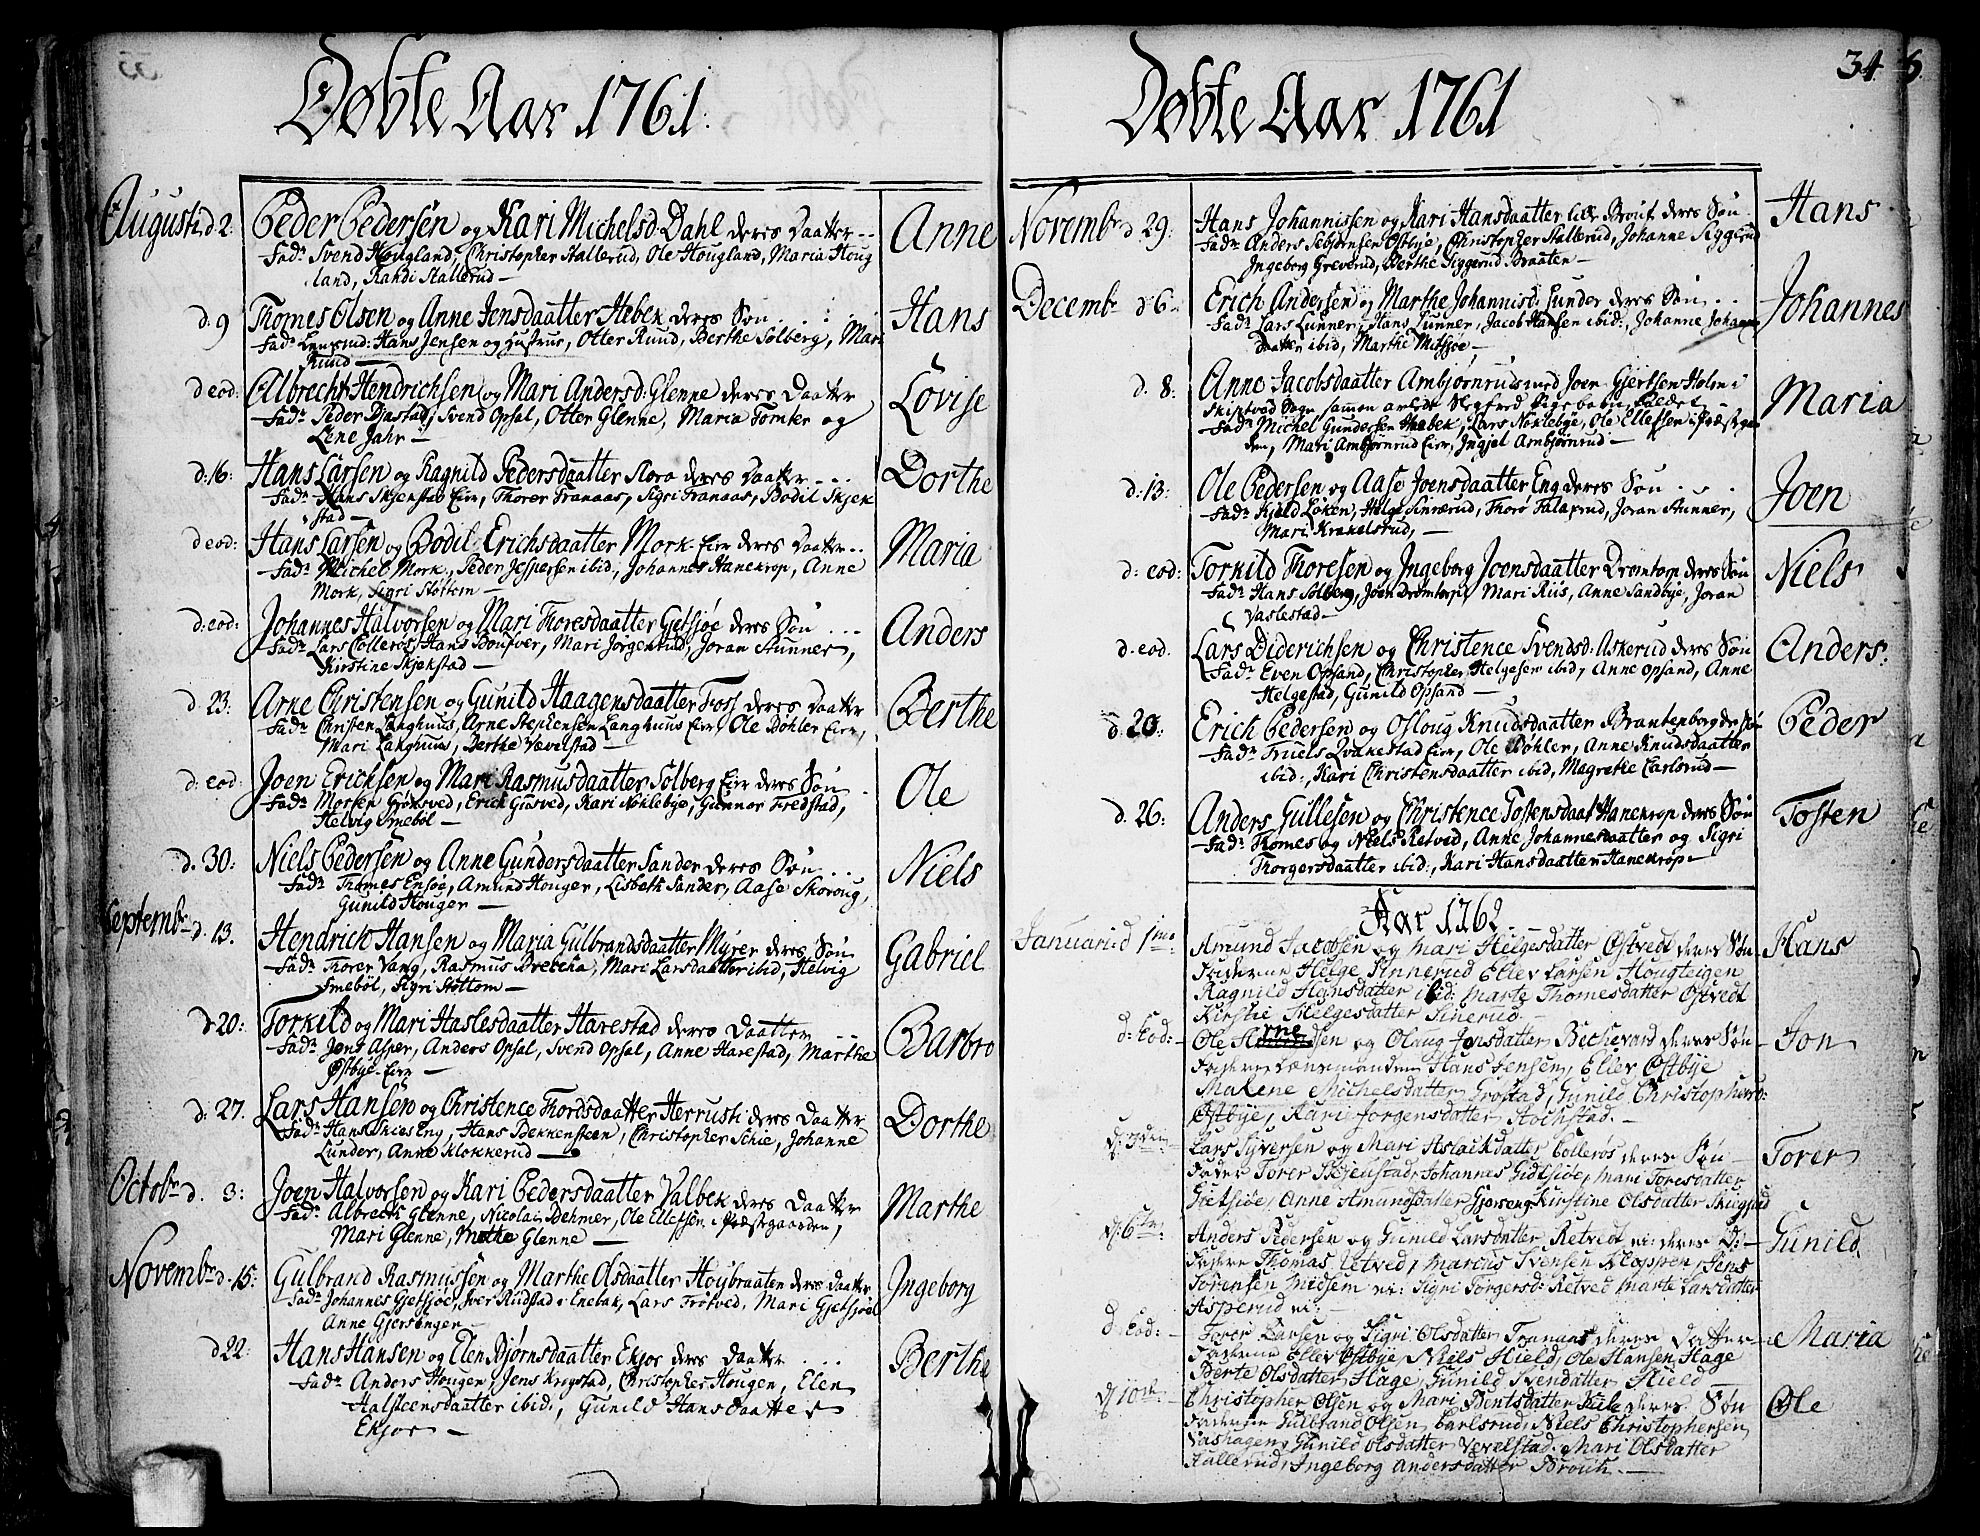 Døbte Aar 1761.
Augusti d. 2. Peder Pedersen og Kari Michelsd. Dahl deres Daatter Anne
Fadr Svend Hougland, Christopher Stallerud, Ole Hougland, Maria Houg
land, Randi Stallerud
d. 9 Thomes Olsen og Anne Jensdaatter Hebek deres Søn Hans
Fadr Hans Jensen og Hustrue, Otter Ruud, Berthe Solberg, Mari
Ruud
d eod: Albrecht Hendrichsen og Mari Andersd. Glenne deres Daatter Lovise
Fadr Peder Diastad, Svend Opsal, Otter Glenne, Maria Tomter og
Lene Jahr
d: 16: Hans Larsen og Ragnild Pedersdaatter Mora deres Daatter Dorthe
Fadr Hans Skjenstad Eier, Thorer Tranaas, Sigri Tranaas, Bodil Skjek
stad
d eod: Hans Larsen og Bodil Erichsdaatter Mork Eier deres Daatter Maria
Fadr Michel Mork, Peder Jespersen ibid, Johannes Hanekrop, Anne
Mork, Sigri Støttom
d: eod: Johannes Halvorsen og Mari Thoresdaatter Getsjøe deres Søn Anders
Fadr Lars Collerøs, Hans Boufver, Mari Jørgenrud, Joran Stunner,
Kirstine Skjekstad
d. 23: Arne Christensen og Gunild Haagensdaatter Foss deres Daatter Berthe
Fadr Christen Langhuus, Arne Stephensen Langhuus Eier, Ole Bøhler Eier,
Mari Langhuus, Berthe Vevelstad
d: eod: Joen Erichsen og Mari Rasmusdaatter Solberg Eier deres Søn Ole
Fadr Morten Grønsved, Erich Grøsved, Kari Nøklebye, Gunnor Fredstad,
Helvig Smebøl
d. 30: Niels Pedersen og Anne Gundersdaatter Sander deres Søn Niels
Fadr Thomes Ensjøe, Amund Houger, Lisbeth Sander, Aase Skoroug,
Gunild Houger
Septembr d. 13. Hendrich Hansen og Maria Gulbrandsdaatter Myrer deres Søn Gabriel
Fadr Thorer Vang, Rasmus Brecha, Mari Larsdaatter ibid, Helvig
Smebøl, Sigri Støttom
d 20: Torkild og Mari Haslesdaatter Harestad deres Daatter Barbro
Fadr Jens Asper, Anders Opsal, Svend Opsal, Anne Harestad, Marthe
Østbye Eier
d: 27. Lars Hansen og Christence Thordsdaatter Herrusti deres Daatter Dorthe
Fadr Hans Skies Eng, Hans Bekkensteen, Christopher Schie, Johanne
Lunder, Anne Klokkerud
Octobr d. 3: Joen Halvorsen og Kari Pedersdaatter Valbek deres Daatter Marthe
Fadr Albrecht Glenne, Nicolai Dehmer, Ole Ellefsen i Præstegaarden,
Mari Glenne, Marthe Glenne
Novembr d. 15: Gulbrand Rasmussen og Marthe Olsdaatter Høybraaten deres Daatter Ingeborg
Fadr Johannes Gjetsjøe, Iver Rudstad i Enebak, Lars Trøtved, Mari Gjetsjøe
Anne Gjersinger
d 22: Hans Hansen og Elen Bjørnsdaatter Ekjor deres Daatter Berthe
Fadr Anders Hougen, Jens Krogstad, Christopher Hougen, Elen
Halsteensdaatter ibid:, Gunild Hansdaatter
Ekjor
34
Døbte Aar 1761
Novembr d 29: Hans Johannissen og Kari Hansdaatter lille Brout deres Søn Hans
Fadr Anders Sebjørnsen Østbye, Christopher Stallerud, Johanne Siggerud
Ingeborg Greverud, Berthe Siggerud Braaten
Decembr d 6 Erich Andersen og Marthe Johannisd: Lunder deres Søn Johannes
Fadr Lars Lunner, Hans Lunner, Jacob Hansen ibid:, Johanne Johannes
Daatter ibid, Marthe Mitsjøe
d. 8: Anne Jacobsdaatter Ambjørnrud med Joen Gjertsen Holm i Maria
Skiptvad Sogn, sammen avlede Slegfred Pigebarn kaldet
Fadr Michel Gundersen Hebek, Lars Nøklebye, Ole Ellefsen i Præstgaar
den, Mari Ambjørnrud Eier, Ingjel Ambjørnrud
d: 13: Ole Pedersen og Aase Joensdaatter Eng deres Søn Joen
Fadr Kield Løken, Helge Sinnerud, Thore Falaxrud, Joran Stunner,
Mari Krakelsrud,
d: eod: Torkild Thoresen og Ingeborg Joensdaatter Drømtorp deres Søn Niels
Fadr Hans Solberg, Joen Drømtorp, Mari Riis, Anne Sandbye, Joran
Vaslestad
d. eod. Lars Diderichsen og Christence Svendsd: Askerud deres Søn Anders:
Fadr Even Opsand, Christopher Helgesen ibid, Anne Opsand, Anne
Helgestad, Gunild Opsand
d. 20: Erich Pedersen og Osloug Knudsdaatter Brantenborg drs Søn Peder
Fadr Truels Qvakestad Eier, Ole Bøhler, Anne Knudsdaatter
ibid:, Kari Christensdaatter ibid, Magrethe Carlsrud
d. 26: Anders Gullesen og Christence Tostensdaat Hanekrop deres Søn Tosten
Fadr Thomes og Niels Retved, Anne Johannesdaatter og Sigri
Thorgersdaatter ibid:, Kari Hansdaatter Hanekrop
Aar 1762
Januarii d 1me Amund Jacobsen og Mari Helgesdatter Østvedt deres Søn Hans
Faderne Helge Sinnerud Ellev Larsen Hougteigen
Ragnild Hansdatter ibid: Marte Thomesdatter Østvedt
Kirstie Helgesdatter Sinerud.
d: Eod: Ole Arnesen og Olaug Jonsdatter Bechevard deres Søn Jon
Faderne Lænsmanden Hans Jensen, Ellev Østbye
Malene Michelsdatter Grøstad, Gunild Christophersd:
Østbye, Karie Jorgensdatter Hochstad.
d: 3den Lars Syversen og Mari Aslachdatter Collerøs deres Søn Torer
Fader Torer Skjenstad, Johannes Gidtsiøe, Mari Toresdatter
Gietsiøe, Anne Amundsdatter Gjerseng Kirstine Olsdatter Skiegstad
d: 6te: Anders Pedersen og Gunild Larsdatter Retvedt ei: deres D: Gunild
Fadere Thomas Retved, Marcus Svensen Kloppen, Jens
Sørensen Midsem ei: Sigri Torgersd: Retved Marte Larsdatter
Asperud ei:
d: Eod: Torer Larsen og Sigri Olsdatter Tranaas deres Datter Maria
Faderne Ellev Østbye, Niels Hield, Ole Hansen Hage
Berte Olsdatter Hage, Gunild Svendatter Hield
d: 10de Christopher Olsen og Mari Bentsdatter Kile deres Søn Ole
Faderne Gulbrand Olsen Carlsrud, Niels Christophersen
Vashagen, Gunild Olsdatter Vevelstad. Mari Olsdatter
Stallerud, Ingeborg Andersdatter Brout.